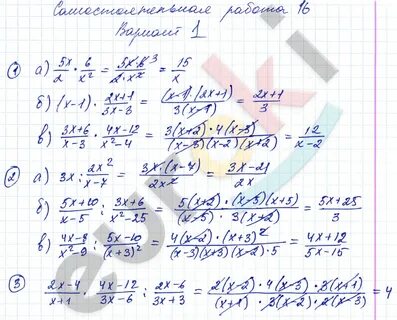 Самостоятельная работа 16
Вариант 1
① а) 5x/2 · 6/x² = 5x·6³/2·x² = 15/x
б) (x-1) · 2x+1/3x-3 = (x-1)(2x+1)/3(x-1) = 2x+1/3
в) 3x+6/x-3 · 4x-12/x²-4 = 3(x+2)·4(x-3)/(x-3)(x-2)(x+2) = 12/x-2
② а) 3x : 2x²/x-7 = 3x·(x-7)/2x² = 3x-21/2x
б) 5x+10/x-5 : 3x+6/x²-25 = 5(x+2)·(x-5)(x+5)/(x-5)·3(x+2) = 5x+25/3
в) 4x-8/x²-9 : 5x-10/(x+3)² = 4(x-2)·(x+3)²/(x-3)(x+3)(x-2)·5 = 4x+12/5x-15
③ 2x-4/x+1 · 4x-12/3x-6 : 2x-6/3x+3 = 2(x-2)·4(x-3)·3(x+1)/(x+1)·3(x-2)·2(x-3) = 4
euroki